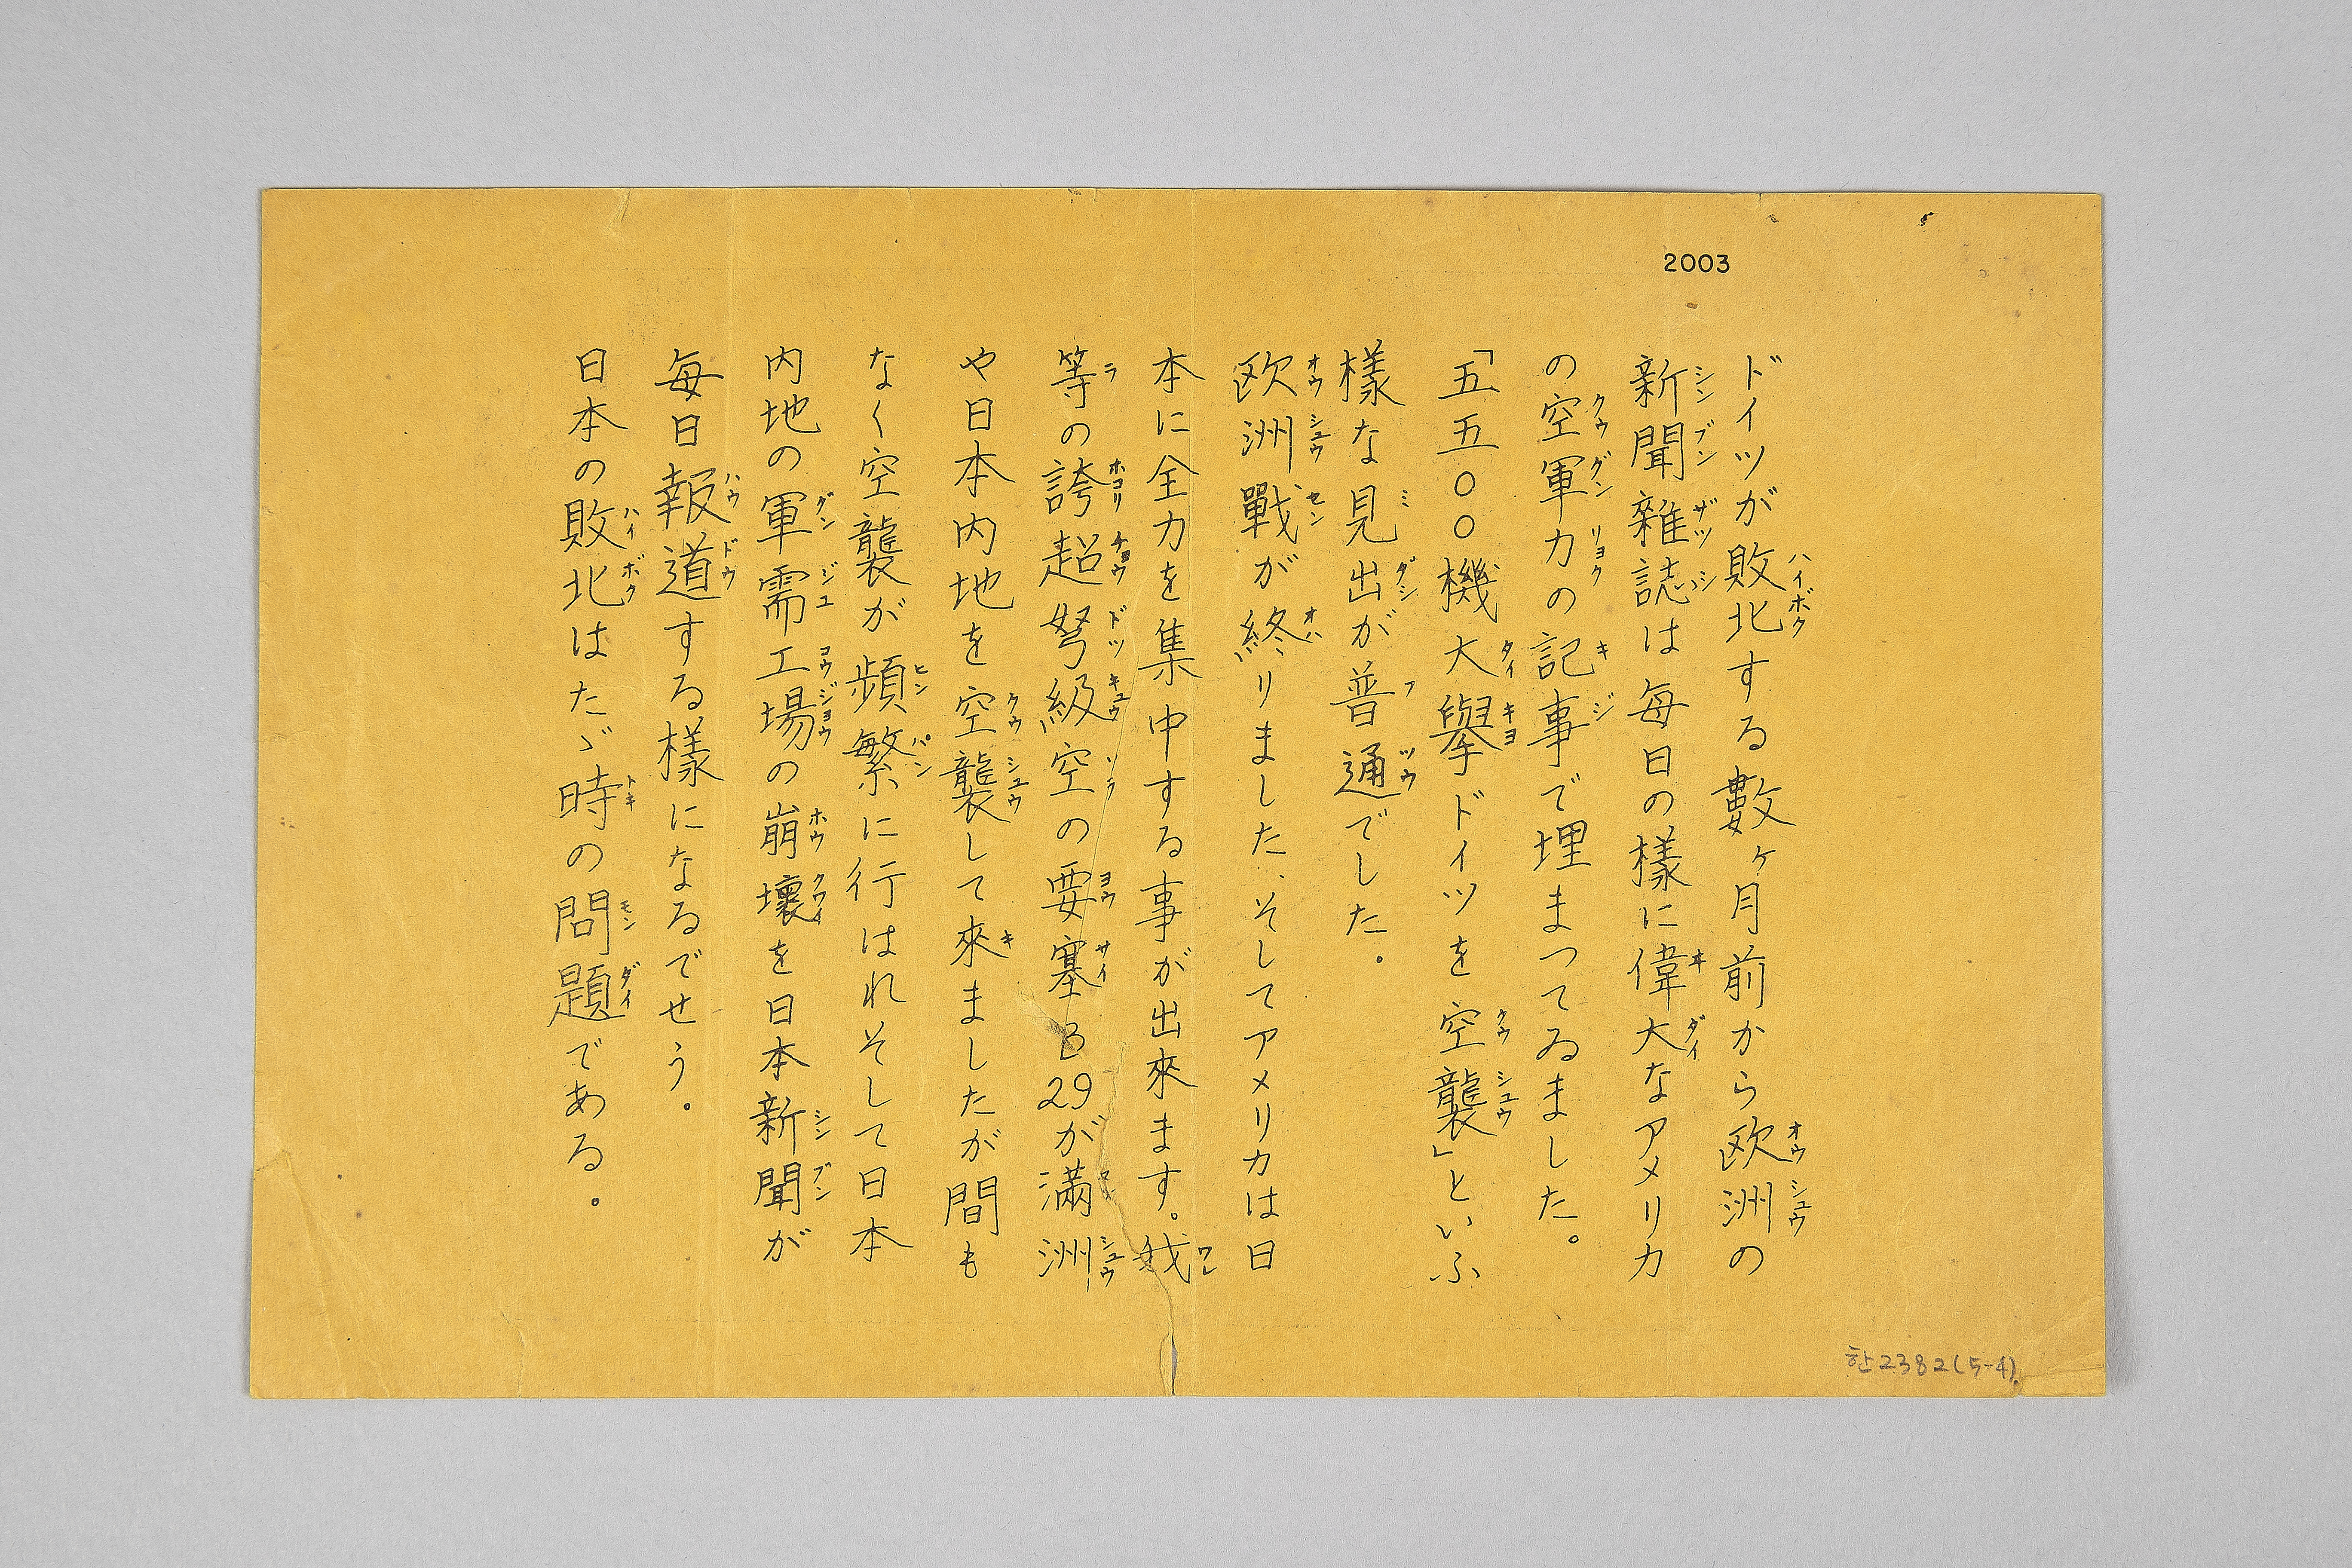 2003
ドイツが敗北する數ヶ月前から欧洲の
新聞雜誌は每日の樣に偉大なアメリカ
の空軍力の記事で埋まつてゐました。
「五五〇〇機大擧ドイツを空襲」といふ
樣な見出が普通でした。
欧洲戰が終りました、そしてアメリカは日
本に全力を集中する事が出來ます。我
等の誇超弩級空の要塞B29が滿洲
や日本内地を空襲して來ましたが間も
なく空襲が頻繁に行はれそして日本
内地の軍需工場の崩壞を日本新聞が
每日報道する樣になるでせう。
日本の敗北はたゞ時の問題である。
한2382(5-4)